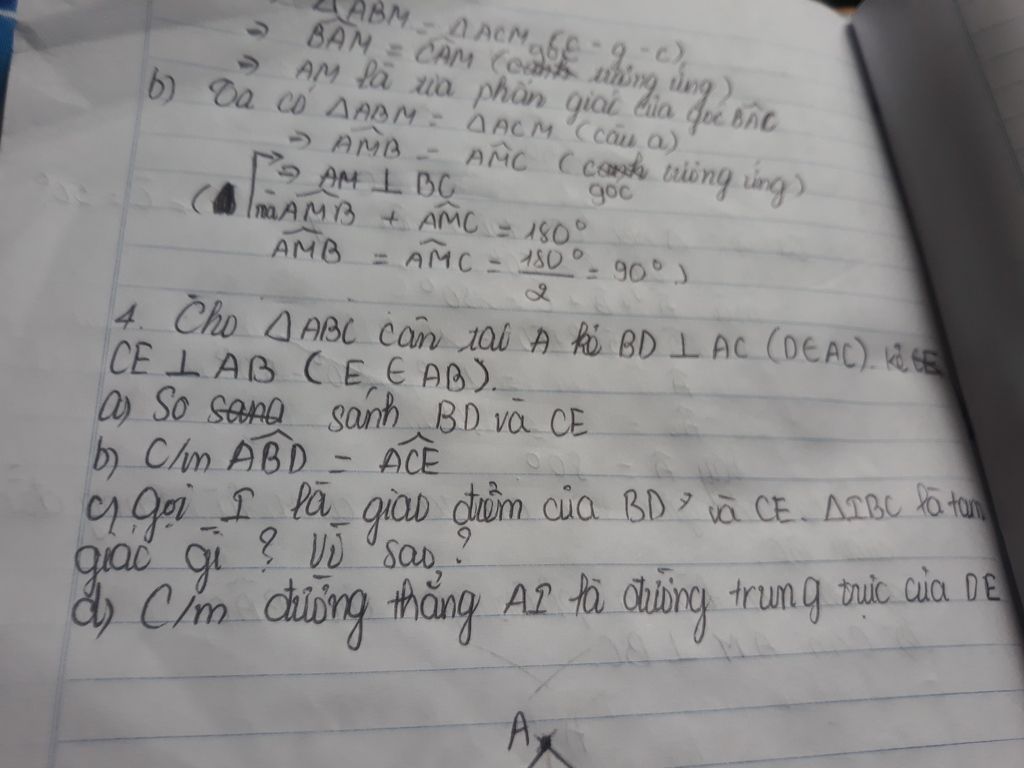 ΔABM = ΔACM (c - g - c)
⇒ BAM = CAM (góc tương ứng)
⇒ AM là tia phân giác của góc BAC
b) Ta có ΔABM = ΔACM (câu a)
⇒ AMB = AMC (canh góc tương ứng)
⇒ AM ⊥ BC
mà AMB + AMC = 180°
AMB = AMC = 180°/2 = 90°)
4. Cho ΔABC cân tại A kẻ BD ⊥ AC (D∈AC). kẻ
CE ⊥ AB (E ∈ AB).
a) So sang sánh BD và CE
b) C/m ABD = ACE
c) Gọi I là giao điểm của BD và CE. ΔIBC là tam
giác gì ? Vì sao ?
d) C/m đường thẳng AI là đường trung trực của DE
A